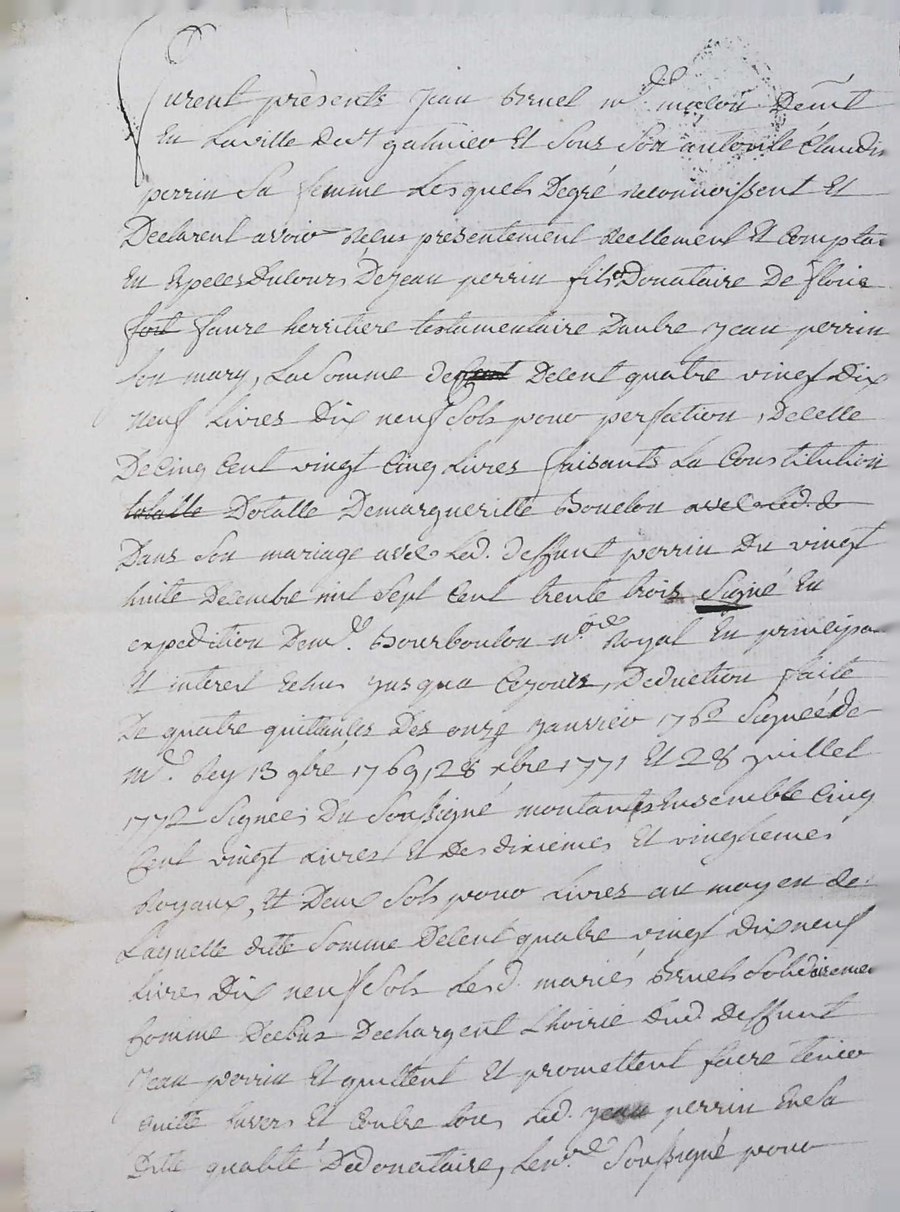 furent présents Jean Bruel me macon demt
En Laville de st galmier Et Sous Son autorité Claudine
perrin Sa femme Lesquels Degré reconnoissent Et
Declarent avoir Recus présentement reellement Et Compta
En Especes Ducours De Jean perrin fils Donataire De fleurie
fort faure herritiere testamentaire Dautre Jean perrin
Son mary, La Somme de Decent quatre vingt Dix
neuf Livres Dix neuf Sols pour perfection, Decelle
De Cinq Cent vingt Cinq Livres faisants La Constitution
totalle Dotalle De margueritte Bouchon avec Led. de
Dans Son mariage avec Led. deffunt perrin Du vingt
huite Decembre mil Sept Cent trente trois Signé En
expedition De me. Bourboulon nre Royal En principa
Et interest Echus Jusqua Cejours, Deduction faite
De quatre quittances Des onze Janvier 176 Signée de
me. Rey 13 9bre 1769, 28 xbre 1771 Et 28 Juillet
1772 Signees Du Soussigné montants Ensemble Cinq
Cent vingt Livres Et Des dixiemes Et vingtiemes
Royaux, Et Deux Sols pour Livres au moyen de
Laquelle ditte Somme Decent quatre vingt dix neuf
Livres Dix neuf Sols Led. mariés Bruel Solidaireme
Comme Decbus Dechargent Lhoirie Dud. Deffunt
Jean perrin Et quittent Et promettent faire tenir
quitte Envers Et Contre tous Led. Jean perrin En sa
Ditte qualité De donataire, Le nre Soussigné pour